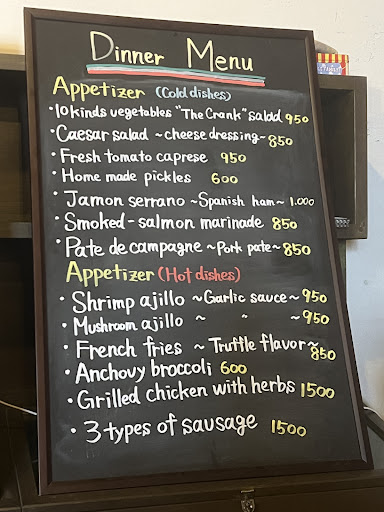 Dinner Menu
Appetizer (Cold dishes)
・10kinds vegetables "The Crank" salad 950
・Caesar salad ~cheese dressing~ 850
・Fresh tomato caprese 950
・Home made pickles 600
・Jamon serrano ~Spanish ham~ 1.000
・Smoked-salmon marinade 850
・Pate de campagne ~Pork pate~ 850
Appetizer (Hot dishes)
・Shrimp ajillo ~Garlic sauce~ 950
・Mushroom ajillo ~ " ~ 950
・French fries ~Truffle flavor~ 850
・Anchovy broccoli 600
・Grilled chicken with herbs 1500
・3 types of sausage 1500